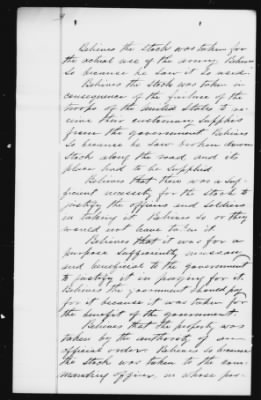 Believes the stock was taken for
the actual use of the army. Believes
so because he saw it so used.
Believes the stock was taken in
consequence of the failure of the
troops of the United States to re-
ceive their customary supplies
from the government Believes
so because he saw broken down
stock along the road, and its
place had to be supplied.
Believes that there was a suf-
ficient necessity for the stock to
justify the officers and soldiers
in taking it. Believes so or they
would not have taken it.
Believes that it was for a
purpose sufficiently necessary
and beneficial to the government
to justify it in paying for it.
Believes the government should pay
for it because it was taken for
the benefit of the government.
Believes that the property was
taken by the authority of an
official order. Believes so because
the stock was taken to the com-
manding officer, in whose pos-